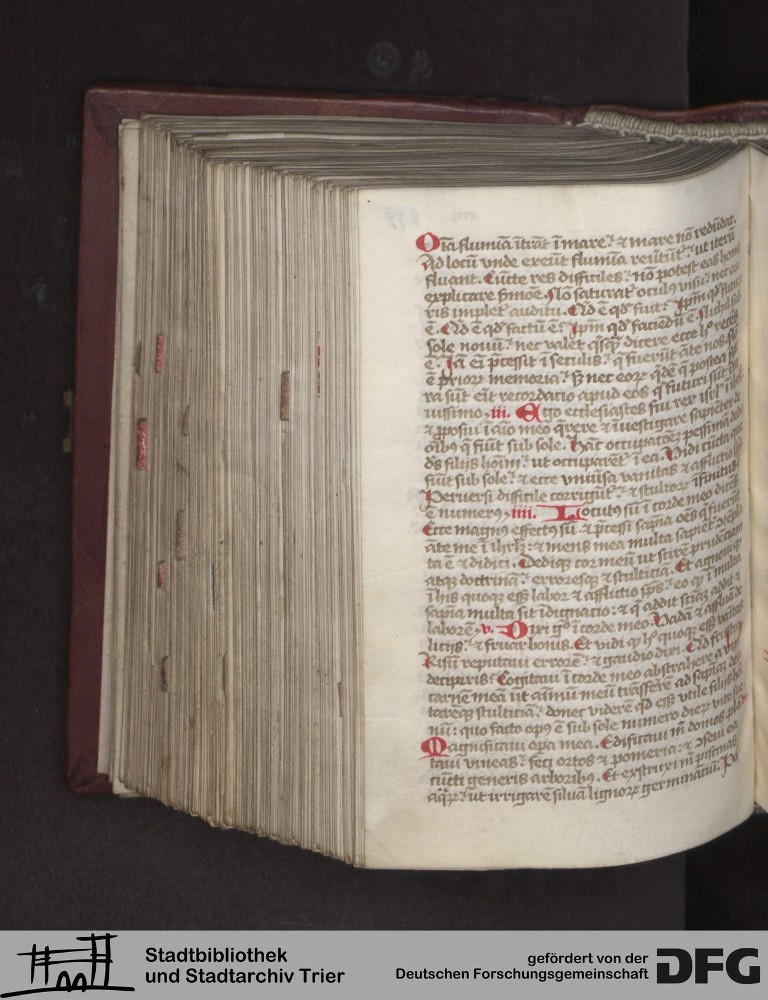 Oīa flumina ītrāt ī mare. & mare nō redūdat.
Ad locū vnde exeūt flumina reuertūt. ut iterū
fluant. Cūcte res difficiles. nō potest eas homo
explicare sermōe. Nō saturat oculꝰ visu. nec au
ris implet auditu. Qd ē qd fuit. Ipm qd futur
ē. Qd ē qd factū ē. Ipm qd faciēdū ē. Nichil sub
sole nouū. nec valet qsqꝫ dicere ecce h recēs
ē. Iā eī pcessit ī seculis. q fuerūt āte nos.
ē priorꝝ memoria. sꝫ nec eorꝝ qdē q postea
ra sūt erit recordatio apud eos q futuri sūt ī
uissimo. iii. Ego ecclesiastes fui rex isrl
& pposui ī aīo meo qrere & īuestigare sapiēter de
oībꝰ q fiūt sub sole. Hāc occupatōeꝫ pessimā dedit
ds filijs hoīm. ut occuparēt ī ea. Vidi cūcta que
fiūt sub sole. & ecce vniuīsa vanitas & afflictio
Peruersi difficile corrigūt. & stultorꝝ īfinitus
ē numerꝰ. iiii. Locutꝰ sū ī corde meo dicēs
Ecce magnꝰ effectꝰ sū. & pcessi sapīa oēs q fuerūt
āte me ī ihrlꝫ. & mens mea multa sapiēt
ta ē & didici. Dediqꝫ cor meū ut scirē prudētiam
atqꝫ doctrinā. erroresqꝫ & stultitiā. Et agnoui q
ī his quoqꝫ eēt labor & afflictio spūs. eo q ī multa
sapīa multa sit īdignatio. & q addit sciāꝫ addit &
laborē. v. Dixi gͦ ī corde meo. Vadā & affluā de
licijs. & fruar bonis. Et vidi q h quoqꝫ eēt vanitas
Risū reputaui errorē. & gaudio dixi. Qd frustra
deciperis. Cogitaui ī corde meo abstrahere a vino
carnē meā ut aīmū meū trāsferē ad sapīaꝫ de
tareqꝫ stultitiā. donec viderē qd eēt vtile filijs
nū. quo facto opꝰ ē sub sole numero dieꝝ vite sue
Magnificaui opa mea. Edificaui m domos. plā
taui vineas. feci ortos & pomeria. & seui ea
cūcti generis arboribꝰ. Et exstruxi m piscinas
aqrꝝ. ut irrigarē siluā lignorꝝ germinatiū. Pos
Stadtbibliothek
und Stadtarchiv Trier
gefördert von der
Deutschen Forschungsgemeinschaft
DFG